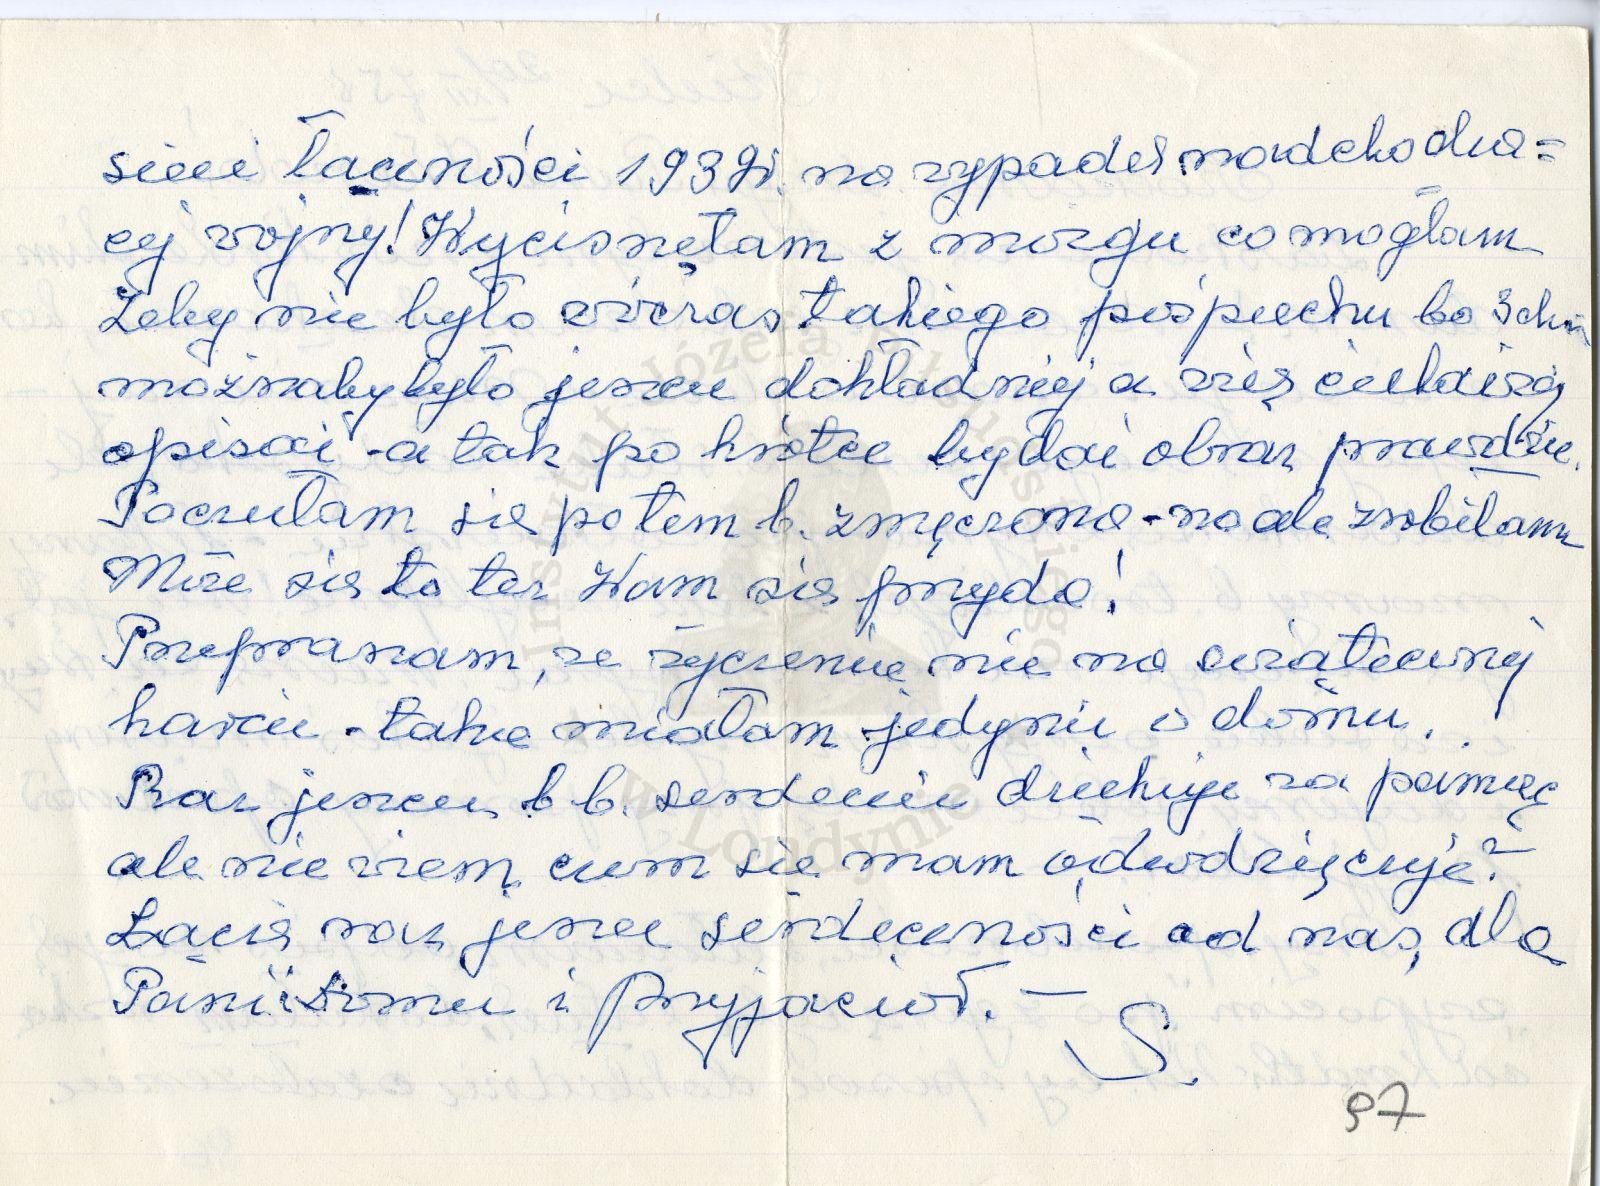 sieci łączności 1939r. na wypadek nadchodzą=
cej wojny! Wycisnęłam z mózgu co mogłam
Żeby nie było wówczas takiego pośpiechu bo
możnaby było jeszcze dokładniej a więc ciekawiej
opisać - a tak po krótce bydai obraz prawdzie.
Poczułam się potem b. zmęczona - no ale zrobiłam
Może się to też Wam się przyda!
Przepraszam, że życzenie nie na świątecznej
karcie - takie miałam jedynie w domu.
Raz jeszcze b b. serdecznie dziękuję za pamięć
ale nie wiem czem się mam odwdzięczyć?
Łączę raz jeszcze serdeczności od nas, dla
Pani i Domu i Przyjaciół. –
S.
97
Instytut Józefa Piłsudskiego
w Londynie